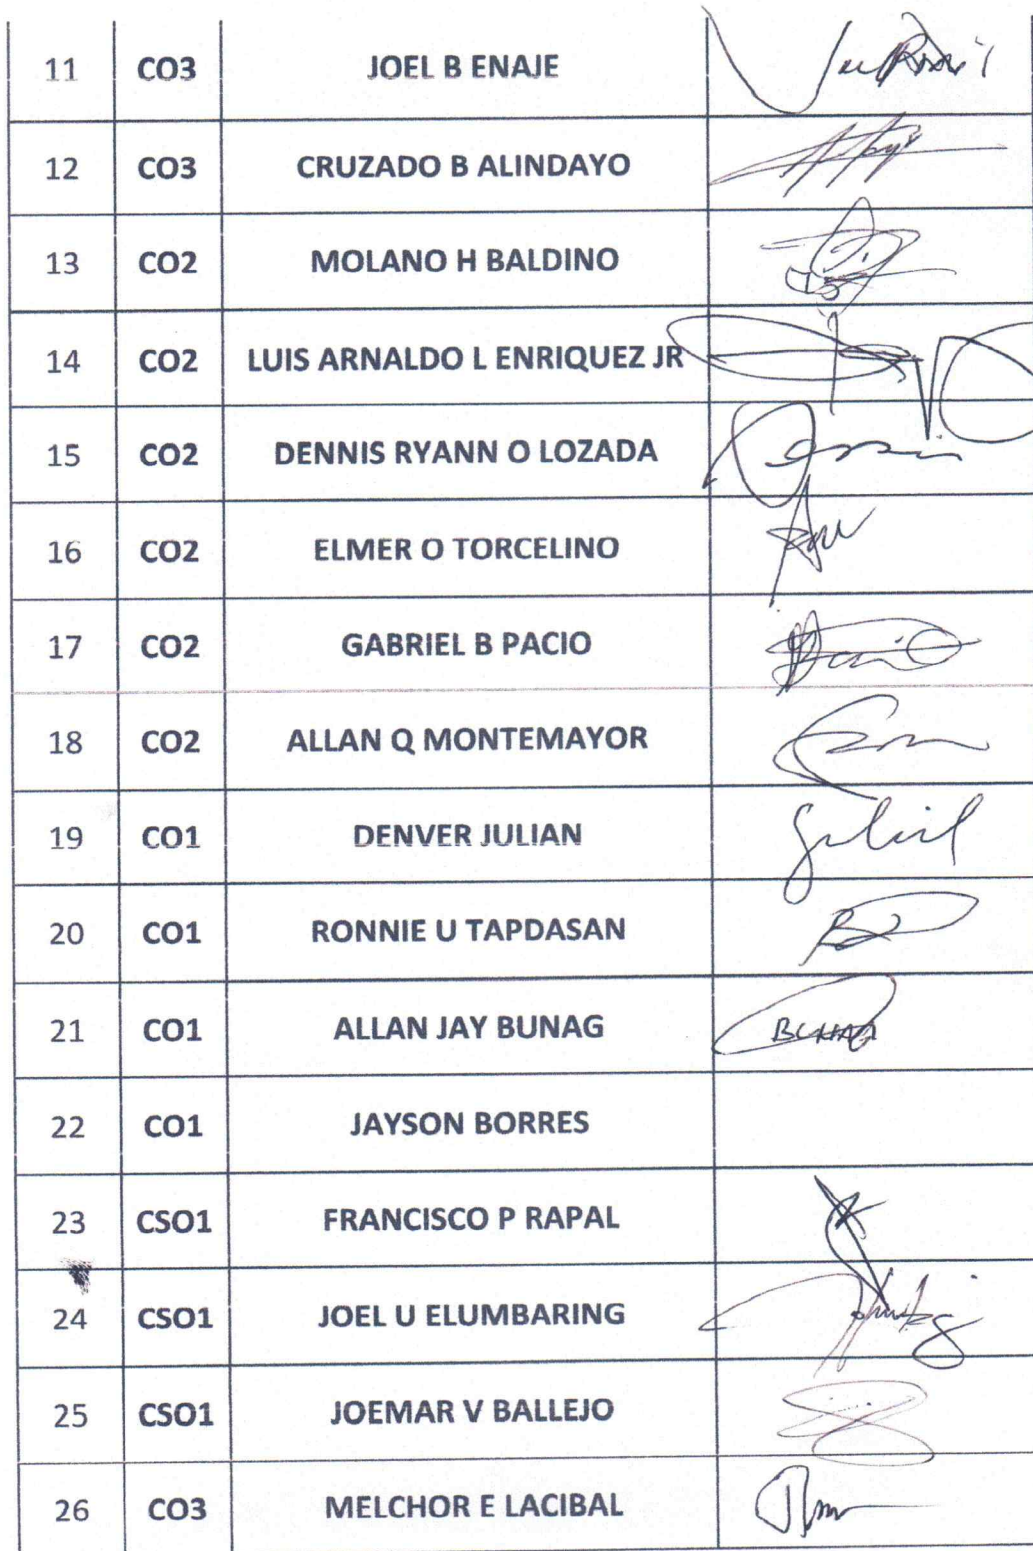 11 CO3 JOEL B ENAJE
12 CO3 CRUZADO B ALINDAYO
13 CO2 MOLANO H BALDINO
14 CO2 LUIS ARNALDO L ENRIQUEZ JR
15 CO2 DENNIS RYANN O LOZADA
16 CO2 ELMER O TORCELINO
17 CO2 GABRIEL B PACIO
18 CO2 ALLAN Q MONTEMAYOR
19 CO1 DENVER JULIAN
20 CO1 RONNIE U TAPDASAN
21 CO1 ALLAN JAY BUNAG
22 CO1 JAYSON BORRES
23 CSO1 FRANCISCO P RAPAL
24 CSO1 JOEL U ELUMBARING
25 CSO1 JOEMAR V BALLEJO
26 CO3 MELCHOR E LACIBAL